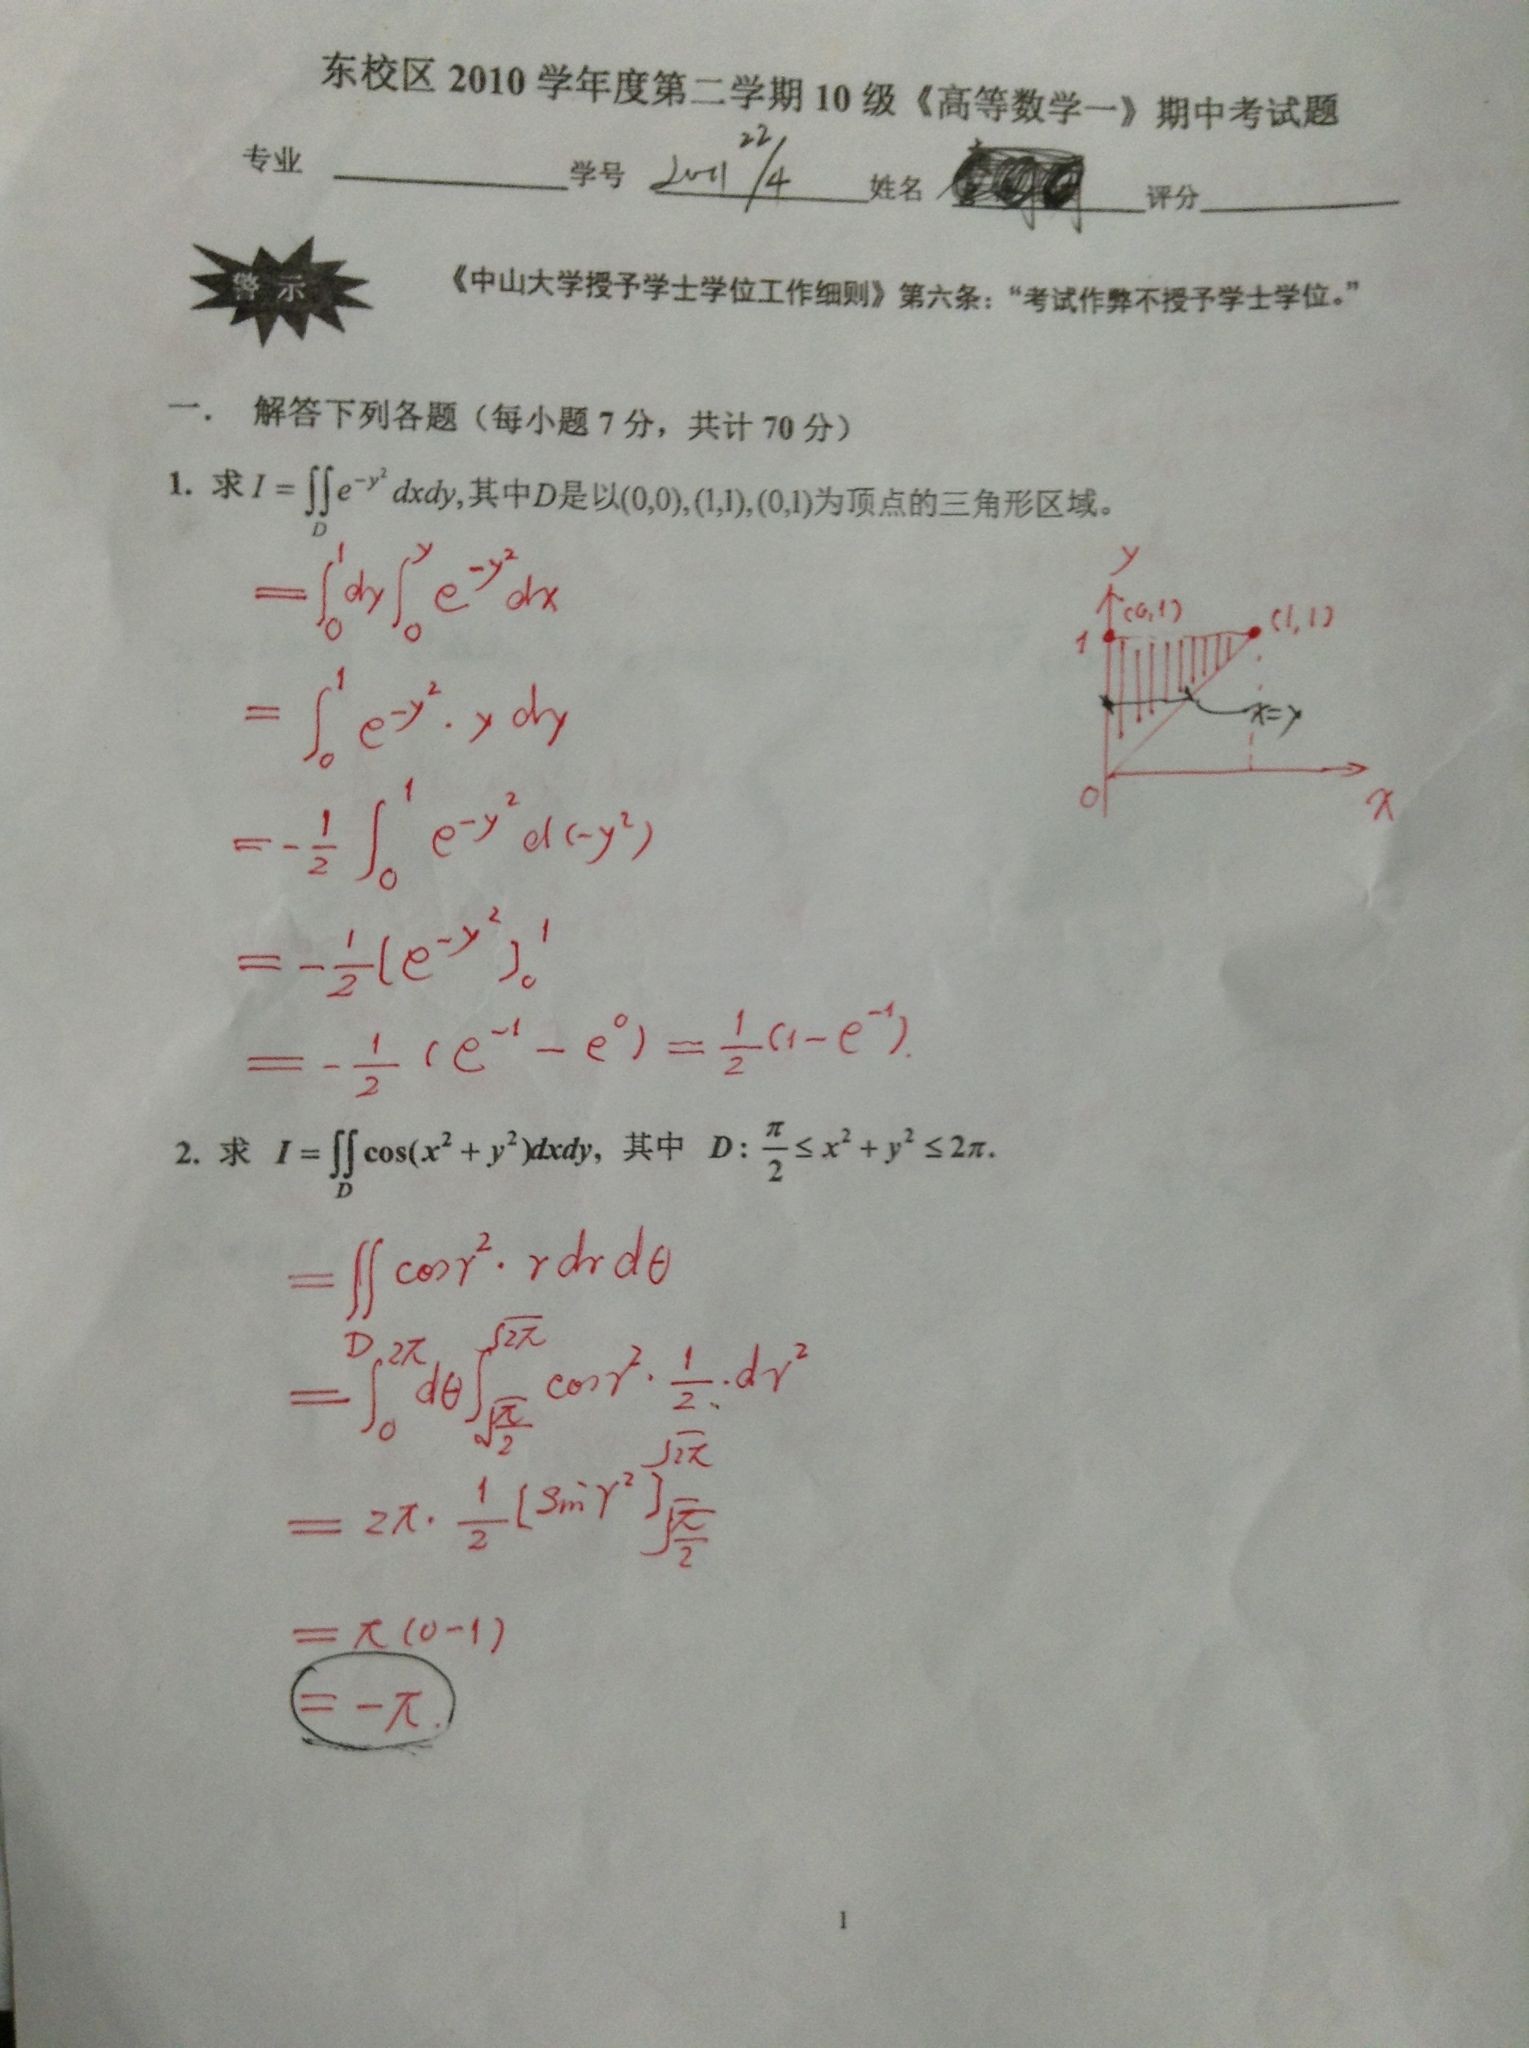 东校区 2010 学年度第二学期 10 级《高等数学一》期中考试题
专业 学号 2011 22/4 姓名 评分
警示
《中山大学授予学士学位工作细则》第六条：“考试作弊不授予学士学位。”
一. 解答下列各题（每小题 7 分，共计 70 分）
1. 求 I = ∬_D e^{-y²} dxdy, 其中D是以(0,0),(1,1),(0,1)为顶点的三角形区域。
= ∫_0^1 dy ∫_0^y e^{-y²} dx
= ∫_0^1 e^{-y²} · y dy
= -1/2 ∫_0^1 e^{-y²} d(-y²)
= -1/2 [e^{-y²}]_0^1
= -1/2 (e^{-1} - e^0) = 1/2 (1 - e^{-1}).
y
(0,1)
(1,1)
1
x=y
0
x
2. 求 I = ∬_D cos(x² + y²)dxdy, 其中 D: π/2 ≤ x² + y² ≤ 2π.
= ∬_D cos r² · r dr dθ
= ∫_0^{2π} dθ ∫_{√(π/2)}^{√(2π)} cos r² · 1/2 · dr²
= 2π · 1/2 [sin r²]_{√(π/2)}^{√(2π)}
= π (0-1)
= -π.
1